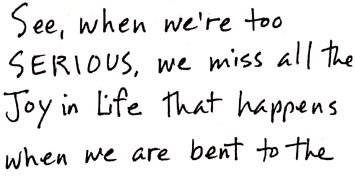 See, when we're too
SERIOUS, we miss all the
Joy in Life that happens
when we are bent to the